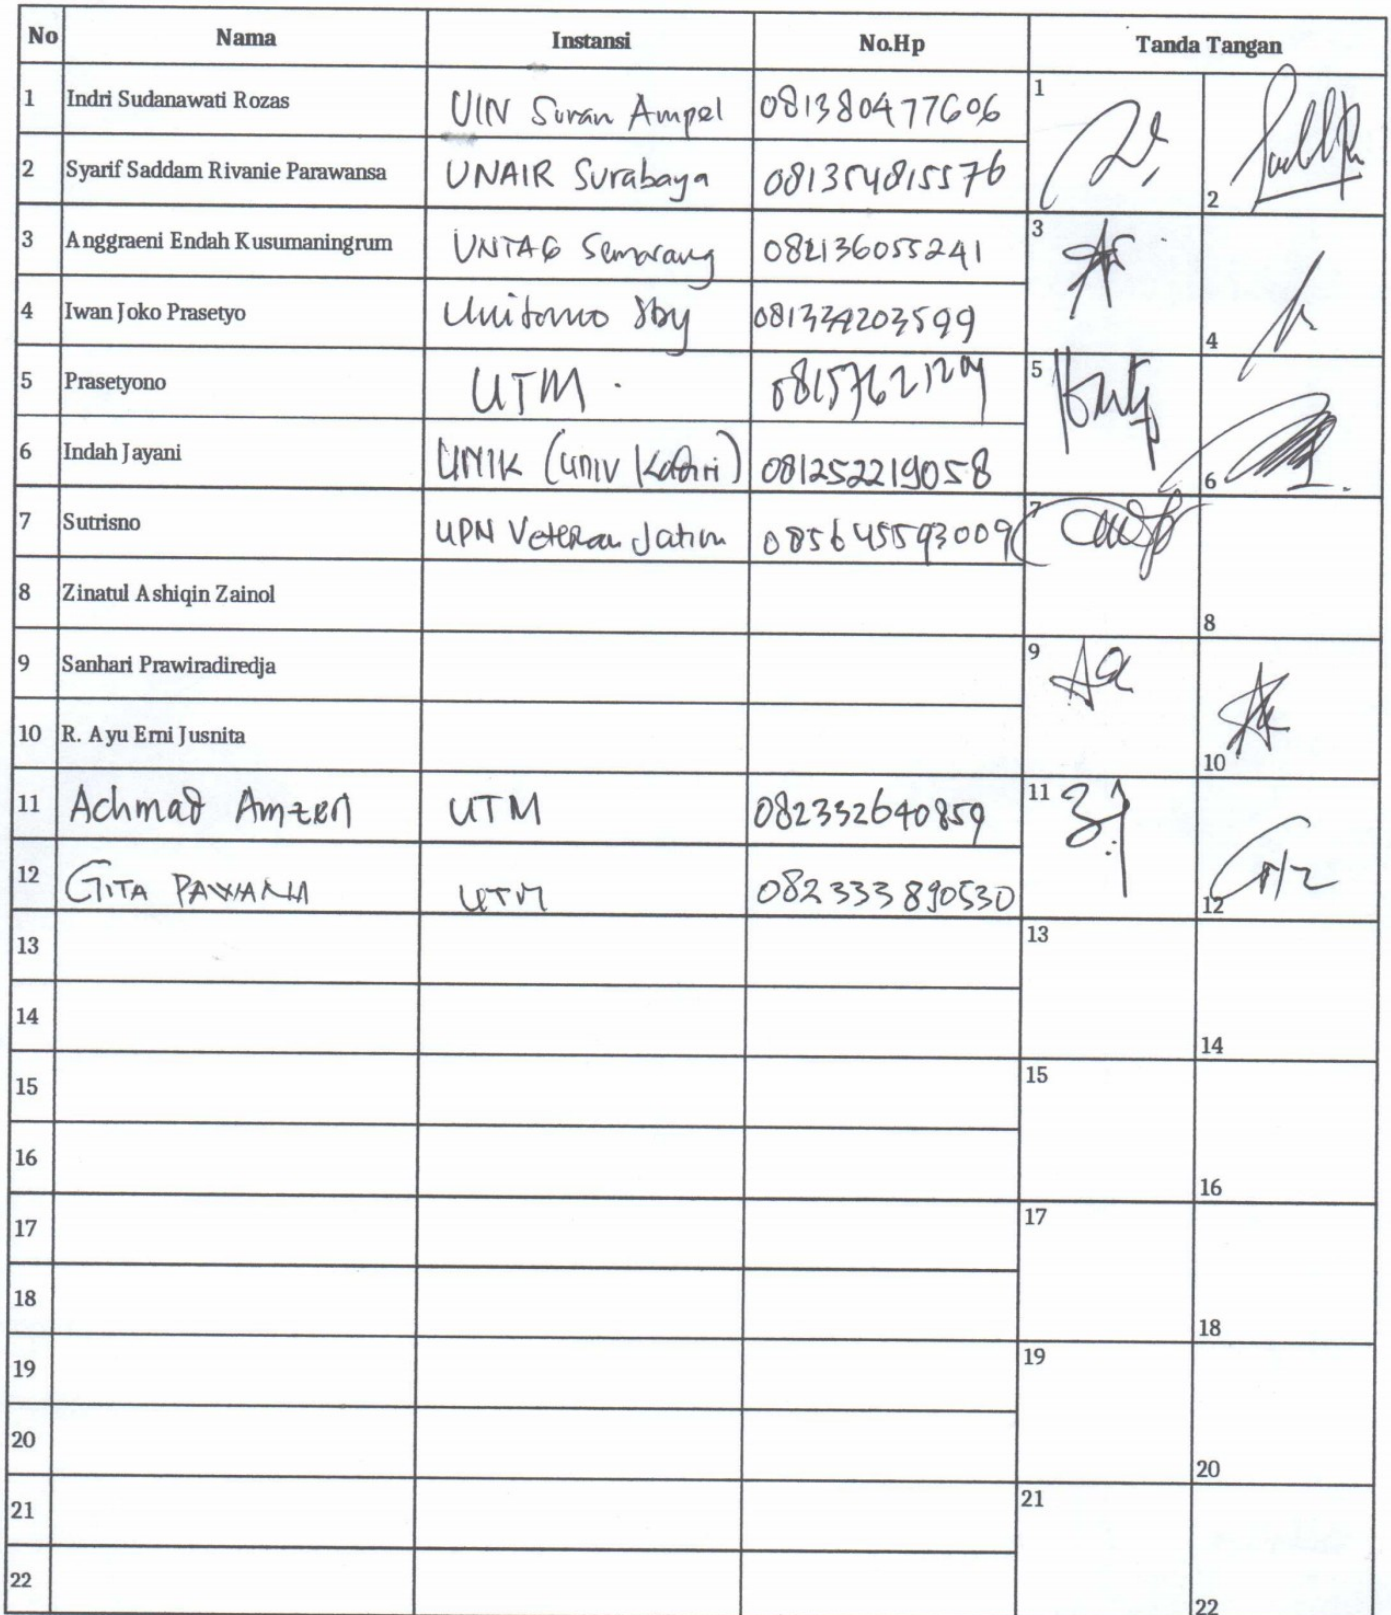 No Nama Instansi No.Hp Tanda Tangan
1 Indri Sudanawati Rozas UIN Sunan Ampel 081380477606 1
2 Syarif Saddam Rivanie Parawansa UNAIR Surabaya 081354815576 2
3 Anggraeni Endah Kusumaningrum UNTAG Semarang 082136055241 3
4 Iwan Joko Prasetyo Unitomo Sby 4
5 Prasetyono UTM. 5
6 Indah Jayani UNIK (Univ Kadiri) 081252219058 6
7 Sutrisno UPN Veteran Jatim 085645593009 7
8 Zinatul Ashiqin Zainol 8
9 Sanhari Prawiradiredja 9
10 R. Ayu Erni Jusnita 10
11 Achmad Amzeri UTM 082332640859 11
12 GITA PAWANA UTM 082333890530 12
13 13
14 14
15 15
16 16
17 17
18 18
19 19
20 20
21 21
22 22